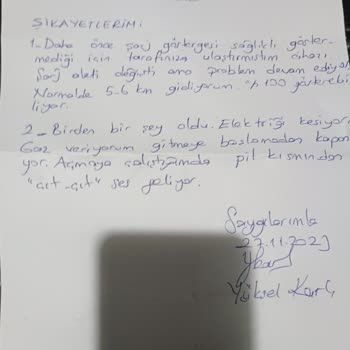 ŞİKAYETLERİM:
1- Daha önce şarj göstergesi sağlıklı göster-
mediği için tarafınıza ulaştırmıştım cihazı
Şarj aleti değişti ama problem devam ediyor
Normalde 5-6 km gidiyorum % 100 gösterebi
liyor.
2- Birden bir şey oldu. Elektriği kesiyor.
Gaz veriyorum gitmeye başlamadan kapanı
yor. Açmaya çalıştığımda pil kısmından
"çıt-çıt" ses geliyor.
Saygılarımla
27.11.2023
Yüksel